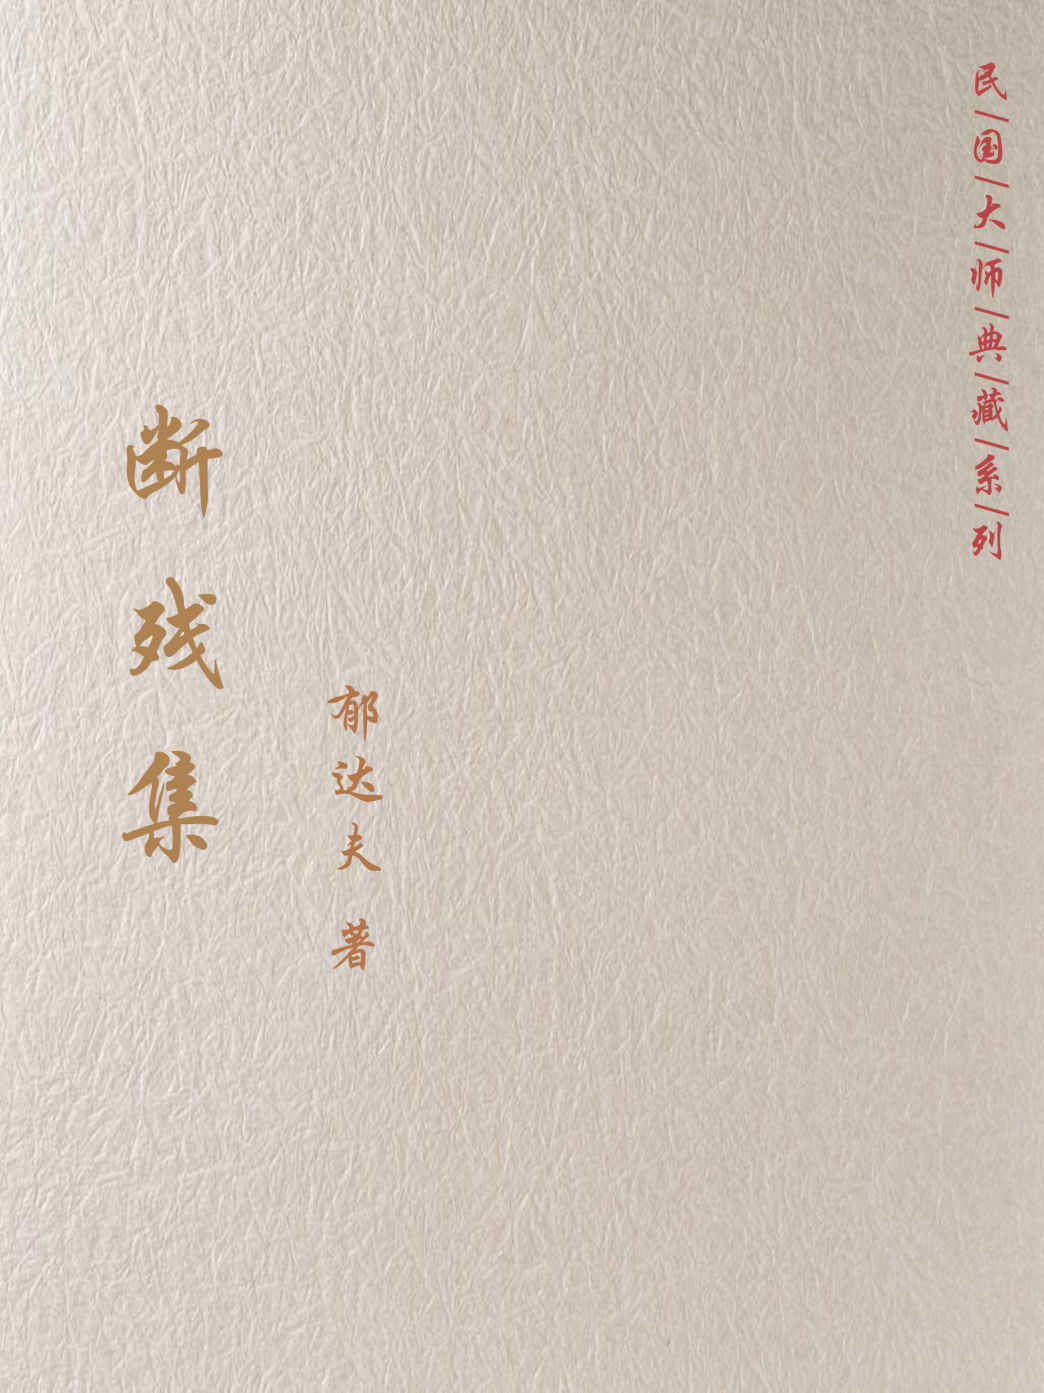 民/国/大/师/典/藏/系/列
郁达夫 著
断残集